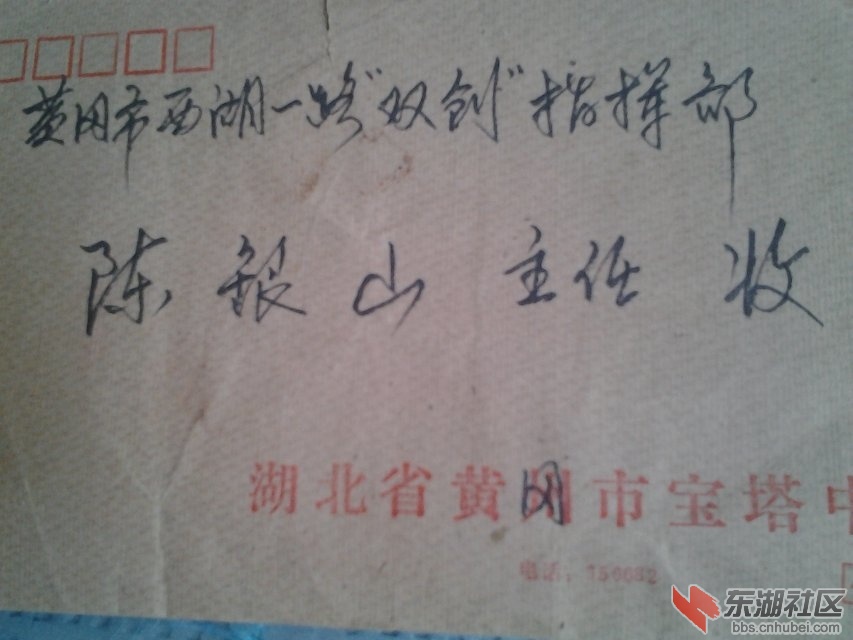 黄冈市西湖一路"双创"指挥部
陈银山 主任 收
湖北省黄冈市宝塔中
电话:
东湖社区
bbs.cnhubei.com